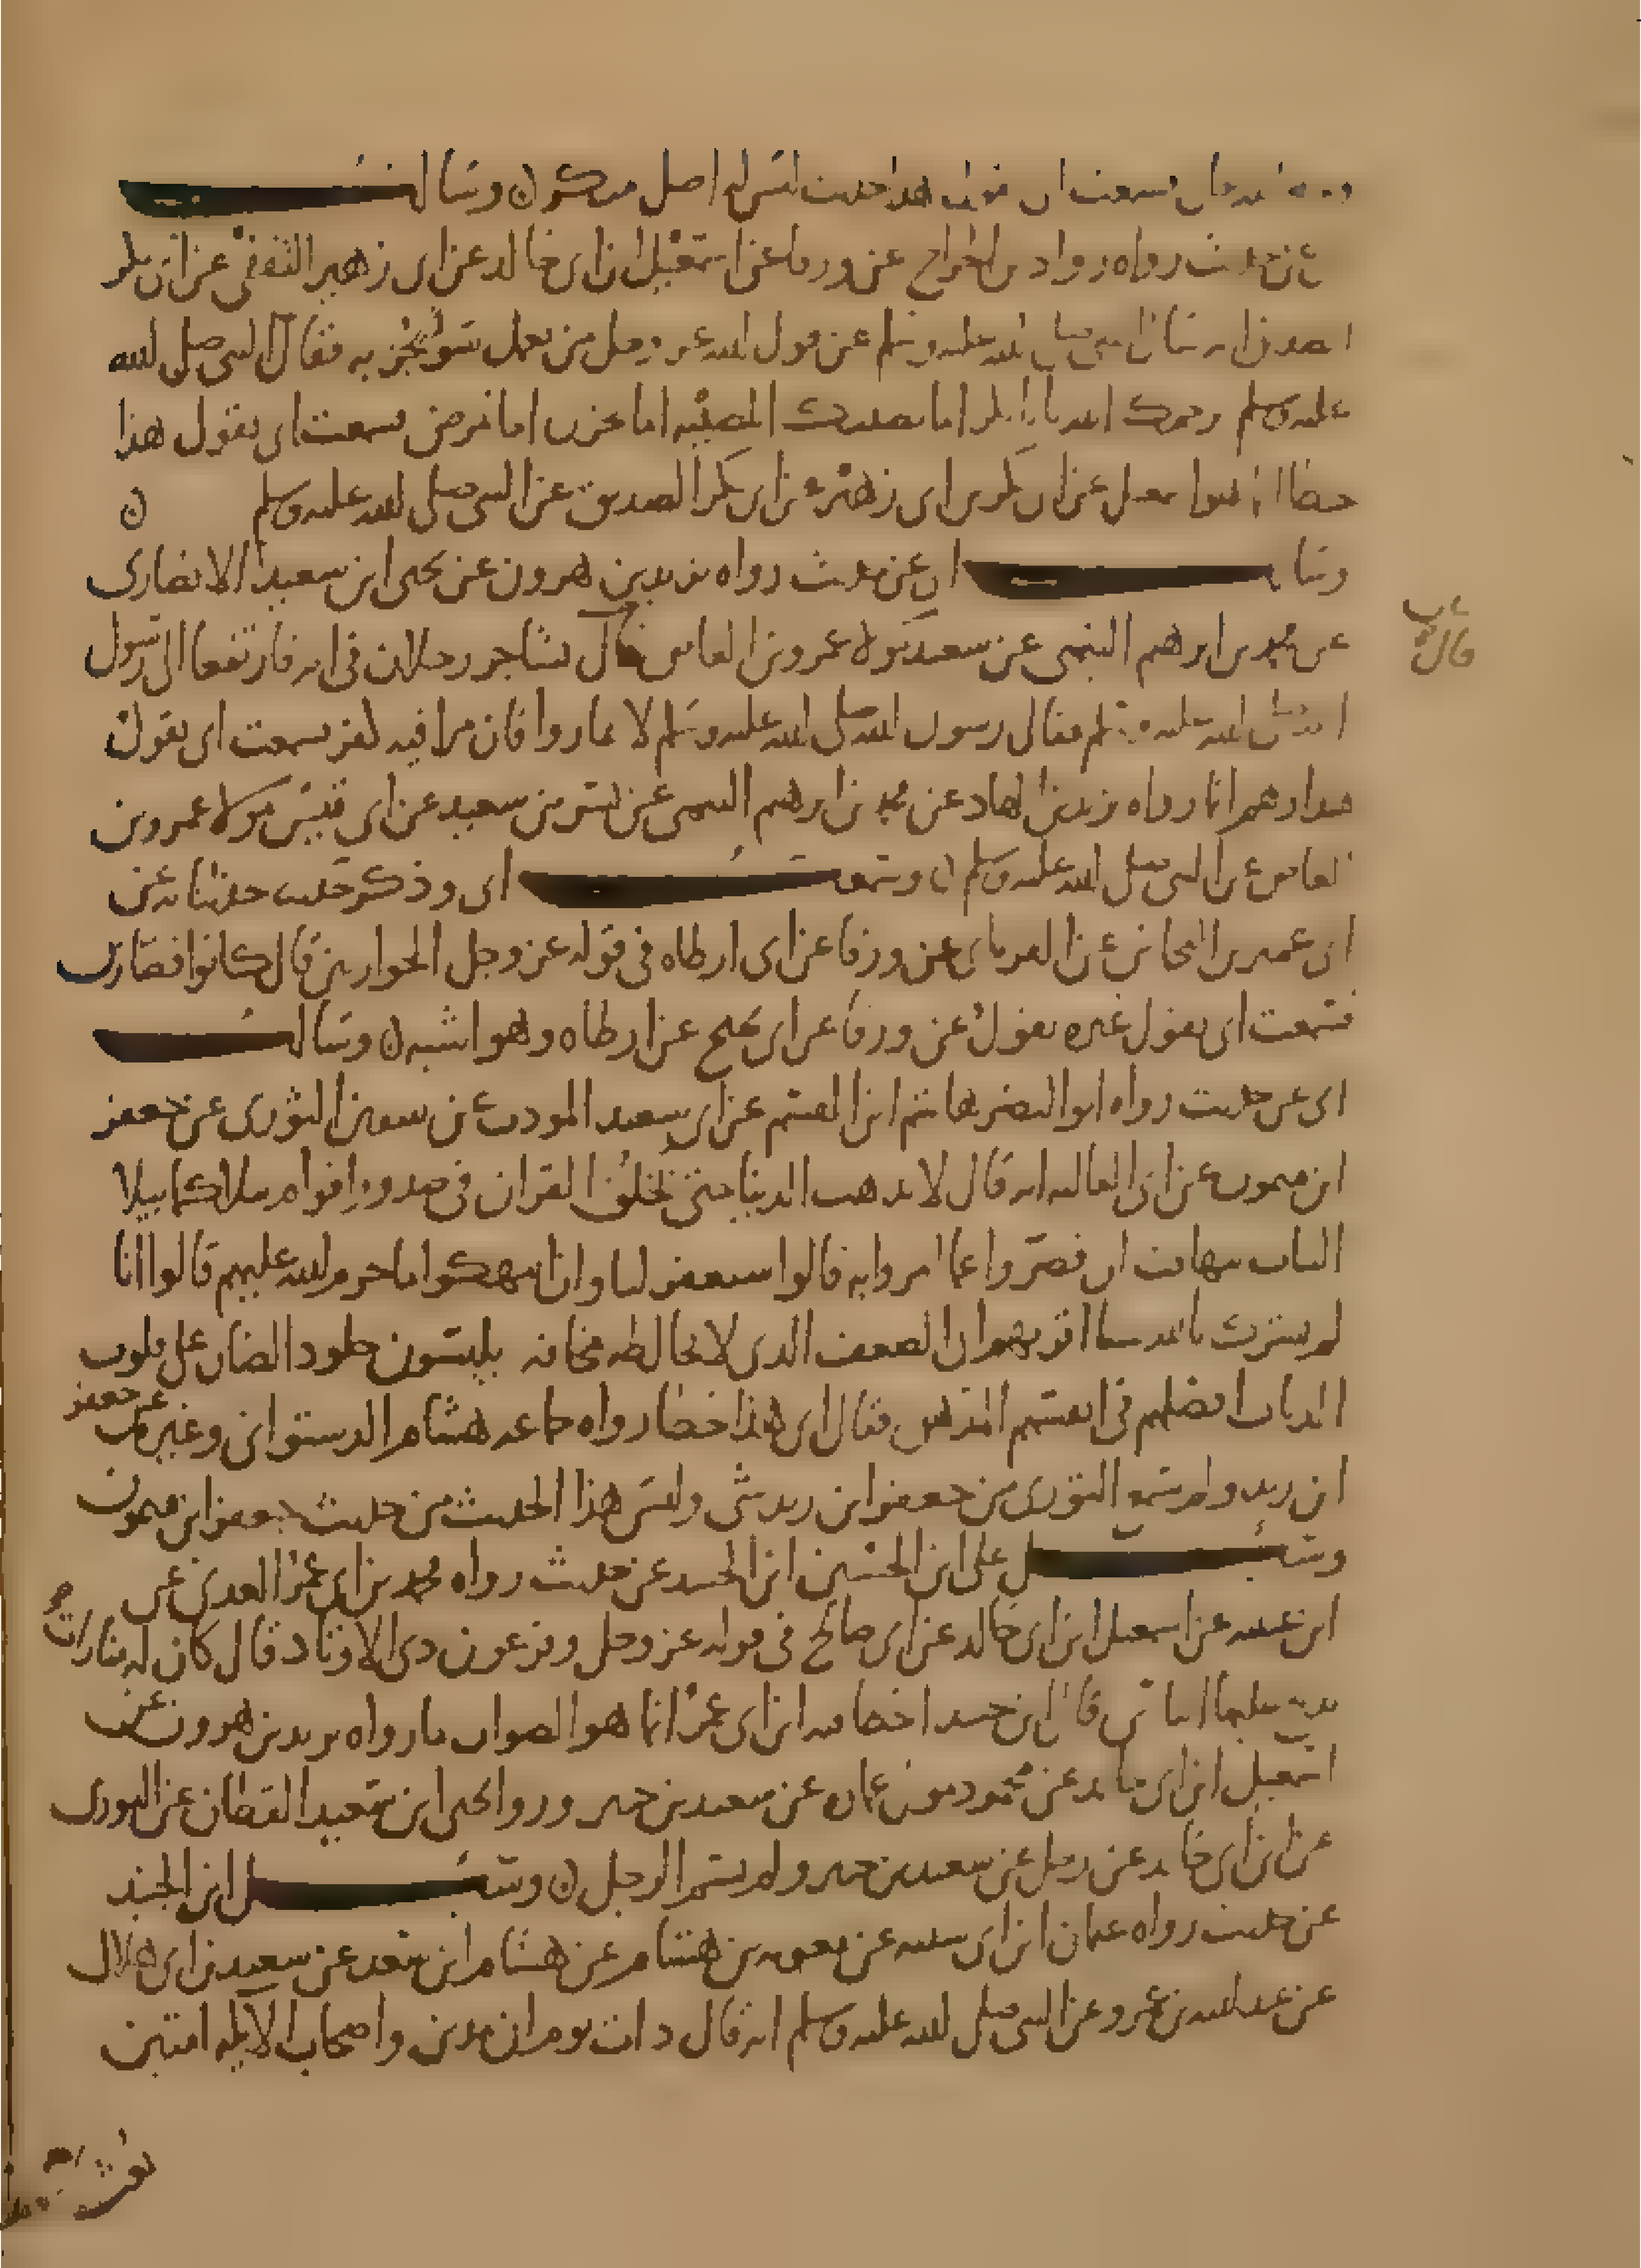 سمعت ابي يقول هذا حديث ليس له اصل منكر ن وسالت
ابي عن حديث رواه رواد بن الجراح عن ورقا عن اسمعيل ابن ابي خالد عن ابي زهير الثقفي عن ابي بكر
الصديق انه سال النبي صلى الله عليه وسلم عن قول الله عز وجل من يعمل سوا يجز به فقال النبي صلى الله
عليه وسلم رحمك الله يا ابا بكر اما تصيبك المصيبه اما تحزن اما تمرض سمعت ابي يقول هذا
خطا انما هو اسمعيل عن ابي بكر بن ابي زهير عن ابي بكر الصديق عن النبي صلى الله عليه وسلم ن
وسالت ابي عن حديث رواه يزيد بن هرون عن يحيى ابن سعيد الانصاري
عن محمد بن ابرهيم التيمي عن سعيد مولا عمرو بن العاص قال تشاجر رجلان في ايه فارتفعا الى رسول
الله صلى الله عليه وسلم فقال رسول الله صلى الله عليه وسلم لا تماروا فان مرا فيه كفر سمعت ابي يقول
هذا وهم انما رواه يزيد بن الهاد عن محمد بن ابرهيم التيمي عن بسر بن سعيد عن ابي قيس مولا عمرو بن
العاص عن النبي صلى الله عليه وسلم ن وسمعت ابي وذكر حديث حدثنا به عن
ابي عمير بن النحاس عن الفريابي عن ورقا عن ابي ارطاه في قوله عز وجل الحوارين قال كانوا قصارين
فسمعت ابي يقول غيره يقول عن ورقا عن ابن ابي نجيح عن ارطاه وهو اشبه ن وسالت
ابي عن حديث رواه ابو النضر هاشم ابن القسم عن ابي سعيد المودب عن سفين الثوري عن جعفر
ابن ميمون عن ابي العاليه انه قال لا تذهب الدنيا حتى يخلق القران في صدور اقوام يبلا كما يبلا
الثياب تهافت ان قصروا عما امروا به قالوا سيغفر لنا وان انتهكوا ما حرم الله عليهم قالوا انا
لم نشرك بالله شيا امرهم الى الضعف الذي لا تخالطه مخافه يلبسون جلود الضان على قلوب
الذياب افضلهم في انفسهم المداهن فقال ابي هذا خطا رواه جماعه هشام الدستواني وغيره عن جعفر
ابن زيد ولم يسمع الثوري من جعفر ابن زيد شي وليس هذا الحديث من حديث جعفر ابن ميمون
وسيل علي ابن الحسين ابن الجنيد عن حديث رواه محمد بن ابي عمر العدني عن
ابن عيينه عن اسمعيل ابن ابي خالد عن ابي صالح في قوله عز وجل وفرعون ذي الاوتاد قال كان له منارات
قال ابن جنيد اخطا فيه ابن ابي عمر انما هو الصواب ما رواه يزيد بن هرون عن
اسمعيل ابن ابي خالد عن محمود مولى عماره عن سعيد بن جبير وروا يحيى ابن سعيد القطان عن الثوري
عن ابن ابي خالد عن رجل عن سعيد بن جبير ولم يسم الرجل ن وسيل ابن الجنيد
عن حديث رواه عثمان ابن ابي شيبه عن معويه بن هشام عن هشام ابن سعد عن سعيد بن ابي هلال
عن عبد الله بن عمرو عن النبي صلى الله عليه وسلم انه قال ذات يوم ان مدين واصحاب الايكه امتين